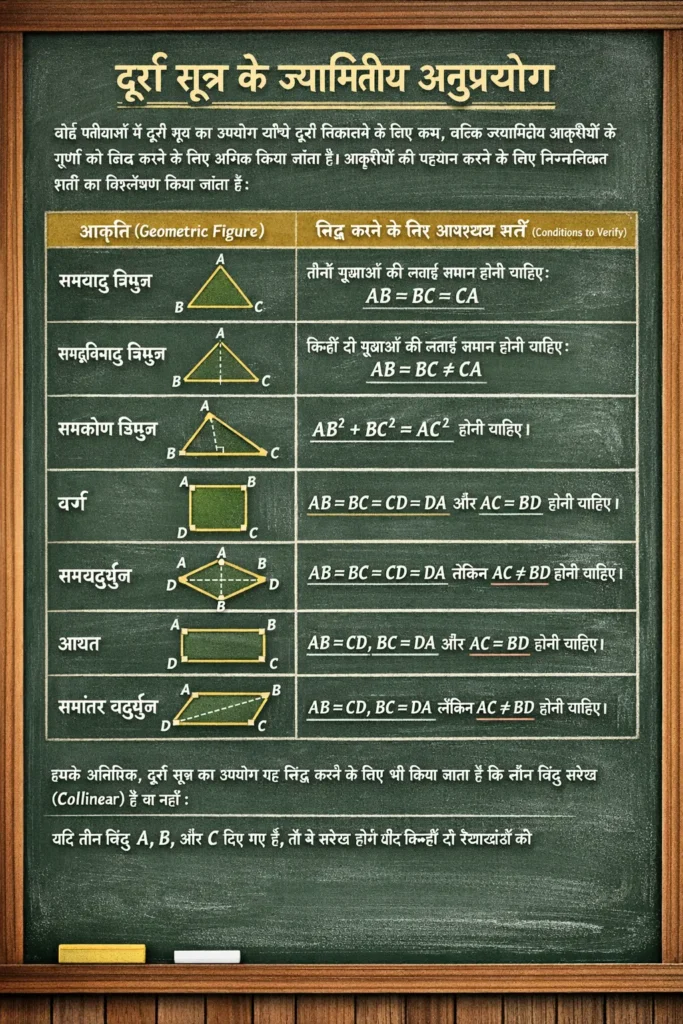 दूर्रा सूत्र के ज्यामितीय अनुप्रयोग
बोर्ड परीयाओं में दूरी सूय का उपयोग याँये दूरी तिकातने के लिए कम, वल्कि ज्यामितिय आकृरीयों के
गुर्णा को लिद करने के लिए अगिक किया जांता है। आकृरीयों की पहयान करने के लिए निग्नलिकत
शर्ती का विश्लेषण किया जांता है:
आकृति (Geometric Figure)
सिद्ध करने के लिए आवश्यय शर्तें (Conditions to Verify)
समयादु त्रिमुज
A
B
C
तीनों गूखाओं की लवाई समान होनी याहिए:
AB = BC = CA
समद्विगादु त्रिमुज
A
B
C
किन्हीं दी गूखाओं की लताई समान होनी याहिए:
AB = BC ≠ CA
समकोण डिमुज
A
B
C
AB² + BC² = AC² होनी याहिए।
वर्ग
A
B
D
C
AB = BC = CD = DA और AC = BD होनी याहिए।
समयदुर्युन
A
A
B
D
D
B
AB = BC = CD = DA तेकिन AC ≠ BD होनी याहिए।
आयत
A
B
D
C
AB = CD, BC = DA और AC = BD होनी याहिए।
समांतर यदुर्युन
A
B
D
C
AB = CD, BC = DA लेंकिन AC ≠ BD होनी याहिए।
हमके अतिप्तिक, दूर्रा सूत्र का उपयोग यह सिद्ध करने के तिए भी किया जाता है कि तीन विंदु सरेख
(Collinear) है वा नहीं :
यदि तीन विंदु A, B, और C दिए गए है, तो वे सरेख होगे यीद किन्हीं दी रेयाखांडों की